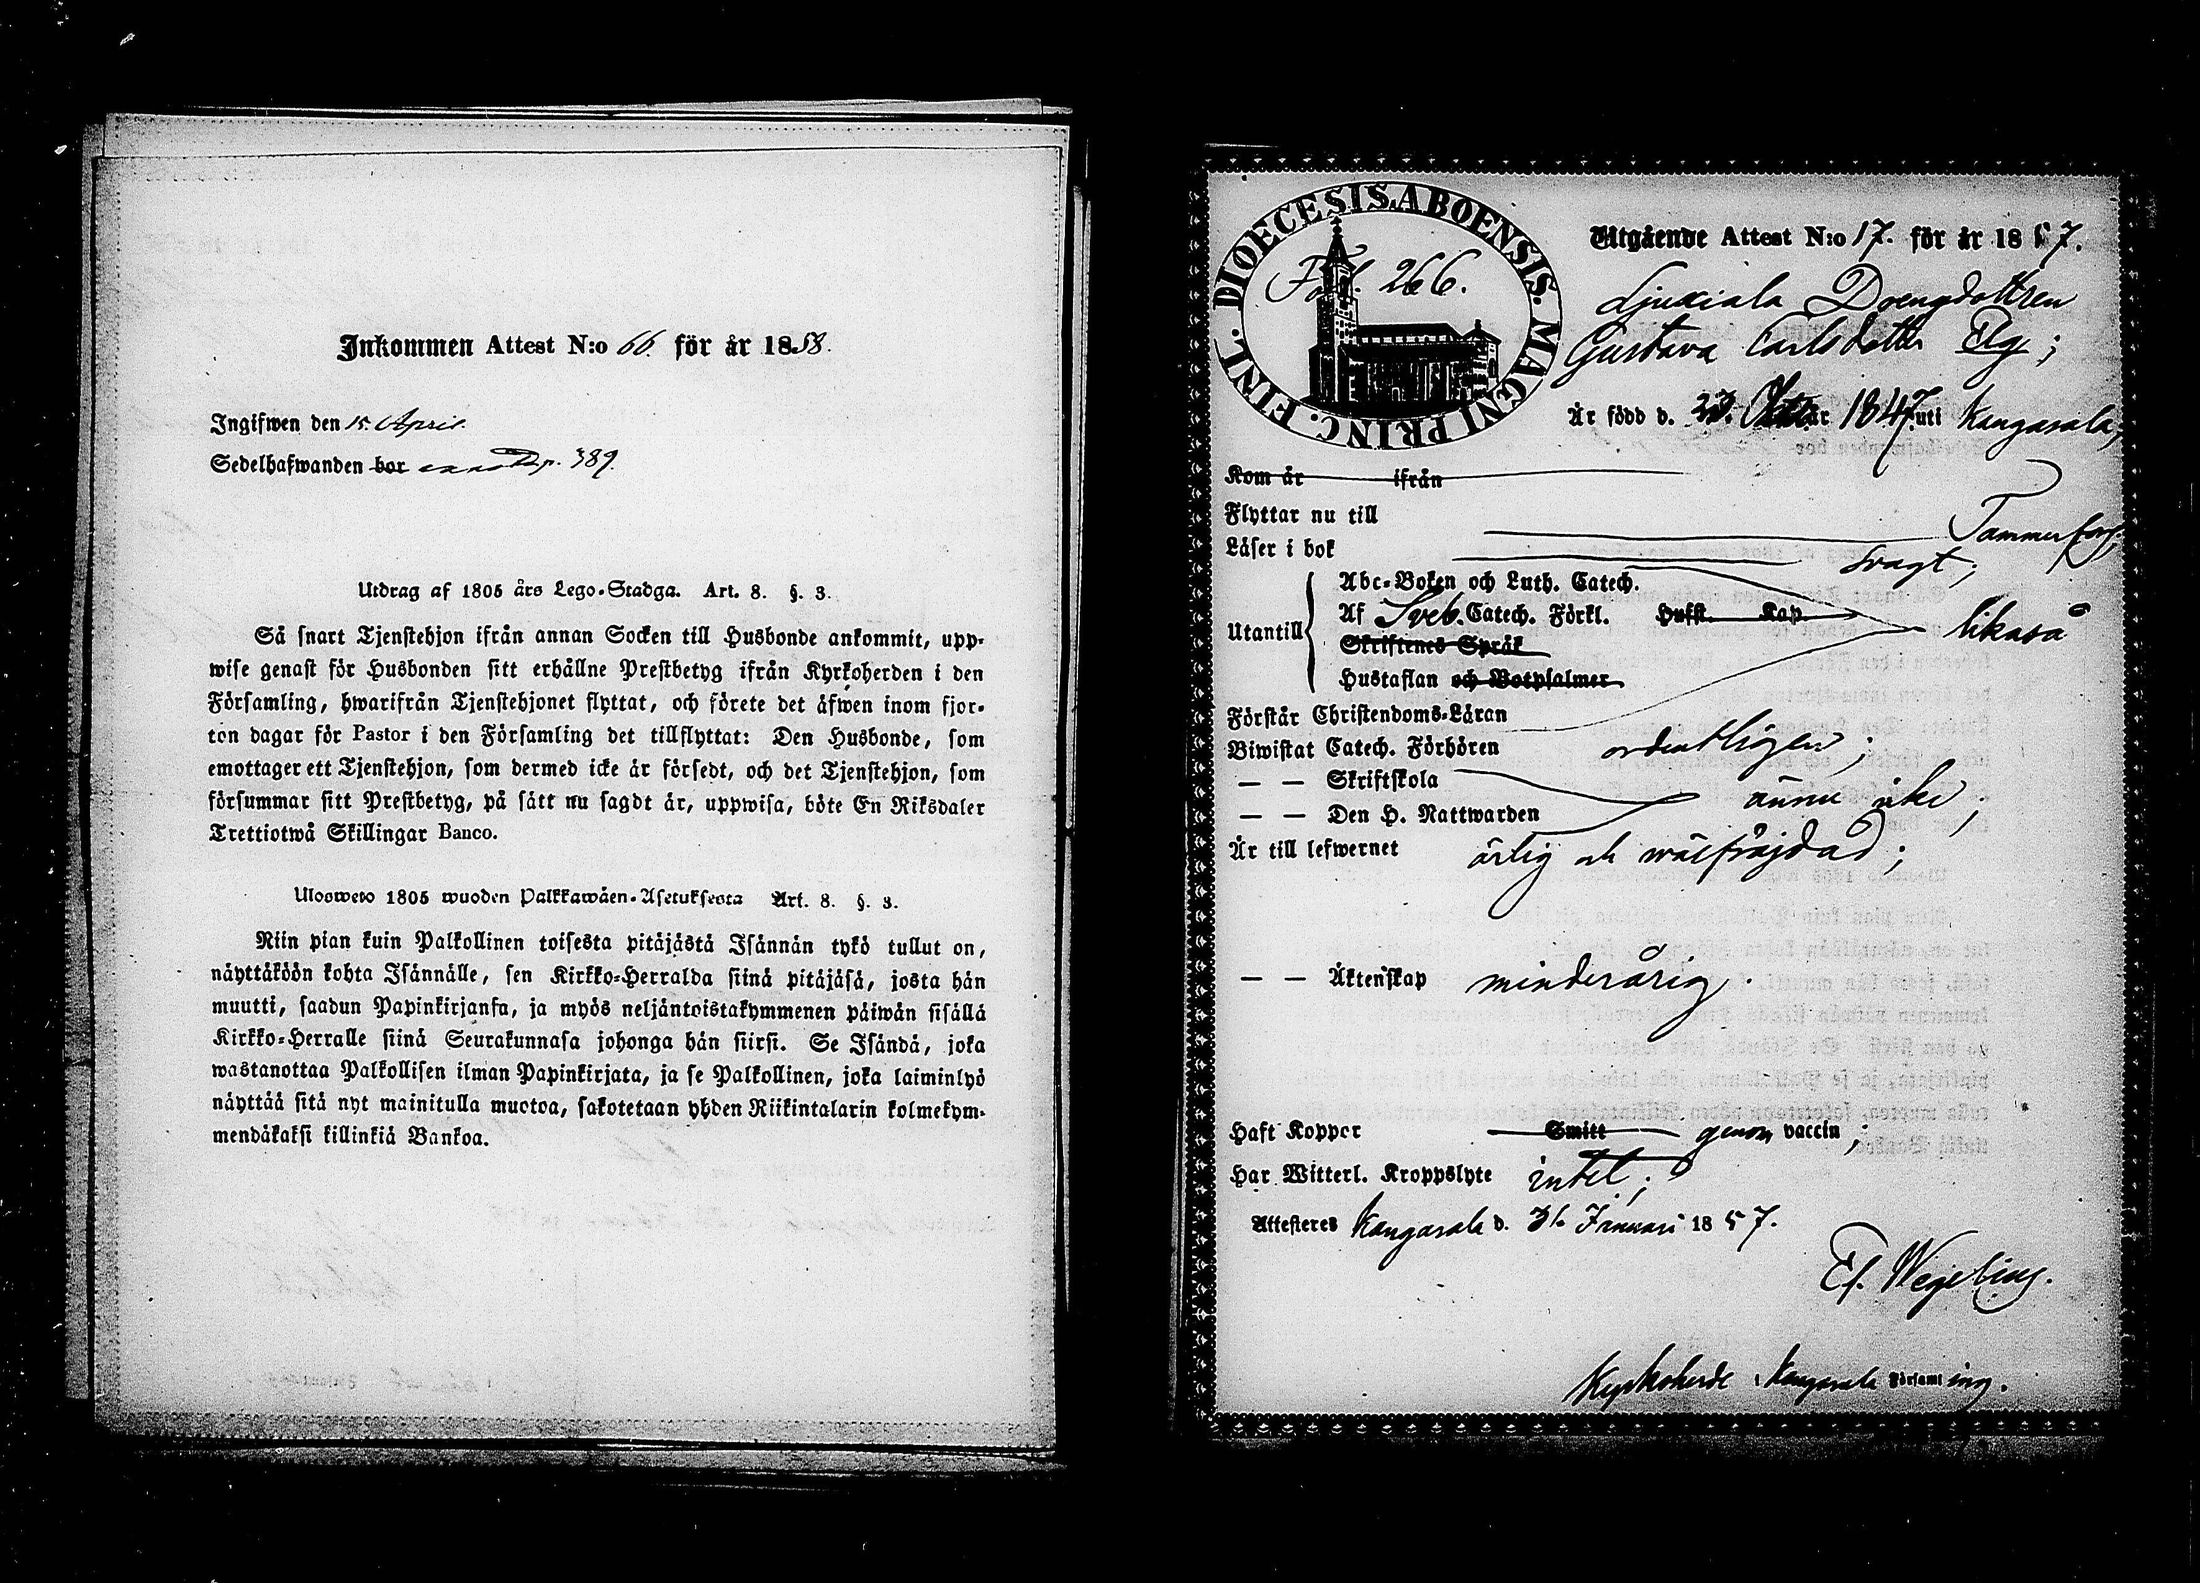 Inkommen Attest N:o 66. för år 1858.
Ingifwen den 15. April.
Sedelhafwanden bor p. 389.
Utdrag af 1805 års Lego-Stadga. Art. 8. §. 3.
Så snart Tjenstehjon ifrån annan Socken till Husbonde ankommit, upp-
wise genast för Husbonden sitt erhållne Prestbetyg ifrån Kyrkoherden i den
Församling, hwarifrån Tjenstehjonet flyttat, och förete det äfwen inom fjor-
ton dagar för Pastor i den Församling det tillflyttat: Den Husbonde, som
emottager ett Tjenstehjon, som dermed icke är försedt, och det Tjenstehjon, som
försummar sitt Prestbetyg, på sätt nu sagdt är, uppwisa, böte En Riksdaler
Trettiotwå Skillingar Banco.
Ulosweto 1805 wuoden Palkkawäen-Asetuksesta Art. 8. §. 3.
Niin pian kuin Palkollinen toisesta pitäjästä Isännän tykö tullut on,
näyttäköön kohta Isännälle, sen Kirkko-Herralda siinä pitäjäsä, josta hän
muutti, saadun Papinkirjansa, ja myös neljäntoistakymmenen päiwän sisällä
Kirkko-Herralle siinä Seurakunnasa johonga hän siirsi. Se Isändä, joka
wastanottaa Palkollisen ilman Papinkirjata, ja se Palkollinen, joka laiminlyö
näyttää sitä nyt mainitulla muotoa, sakotetaan yhden Riikintalarin kolmekym-
mendäkaksi killinkiä Bankoa.
DIOECESIS.ABOENSIS. MAGNI PRINC. FINL.
Fol. 266.
Utgående Attest N:o 17. för år 1857.
Ljuxiala Drengdottren
Gustava Carlsdotter Elg;
Är född d. 23. Oktober 1847 uti Kangasala,
Kom år ifrån
Flyttar nu till Tammerfors;
Läser i bok svagt;
Utantill
Abc-Boken och Luth. Catech.
Af Sveb. Catech. Förkl. Hufst. Kap. likaså
Skriftenes Språk
Hustaflan och Botpsalmer
Förstår Christendoms-Läran
Biwistat Catech. Förhören ordentligen;
— — Skriftskola ännu icke;
— — Den H. Nattwarden
Är till lefwernet ärlig och wälfräjdad;
— — Äktenskap minderårig.
Haft Koppor Smitt genom vaccin;
Har Witterl. Kroppslyte intet;
Attesteres Kangasala d. 31. Januari 1857.
Ef. Wegelius.
Kyrkoherde i Kangasala Församling.